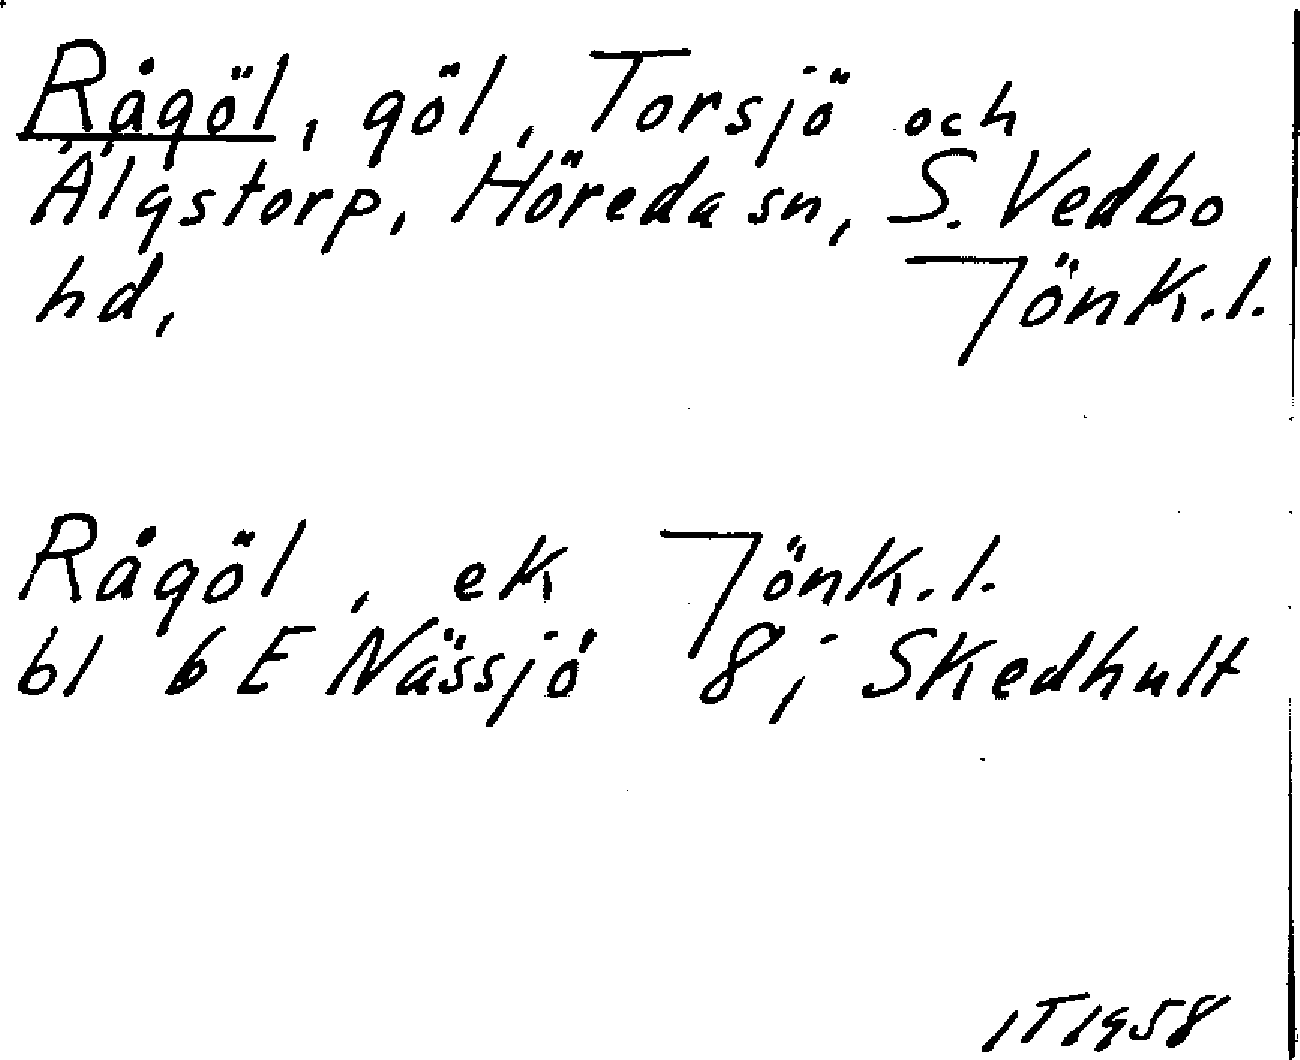 Rågöl, göl, Torsjö och
Älgstorp, Höreda sn, S. Vedbo
hd, Jönk.l.
Rågöl, ek Jönk.l.
bl 6 E Nässjö 8; Skedhult
IT1958